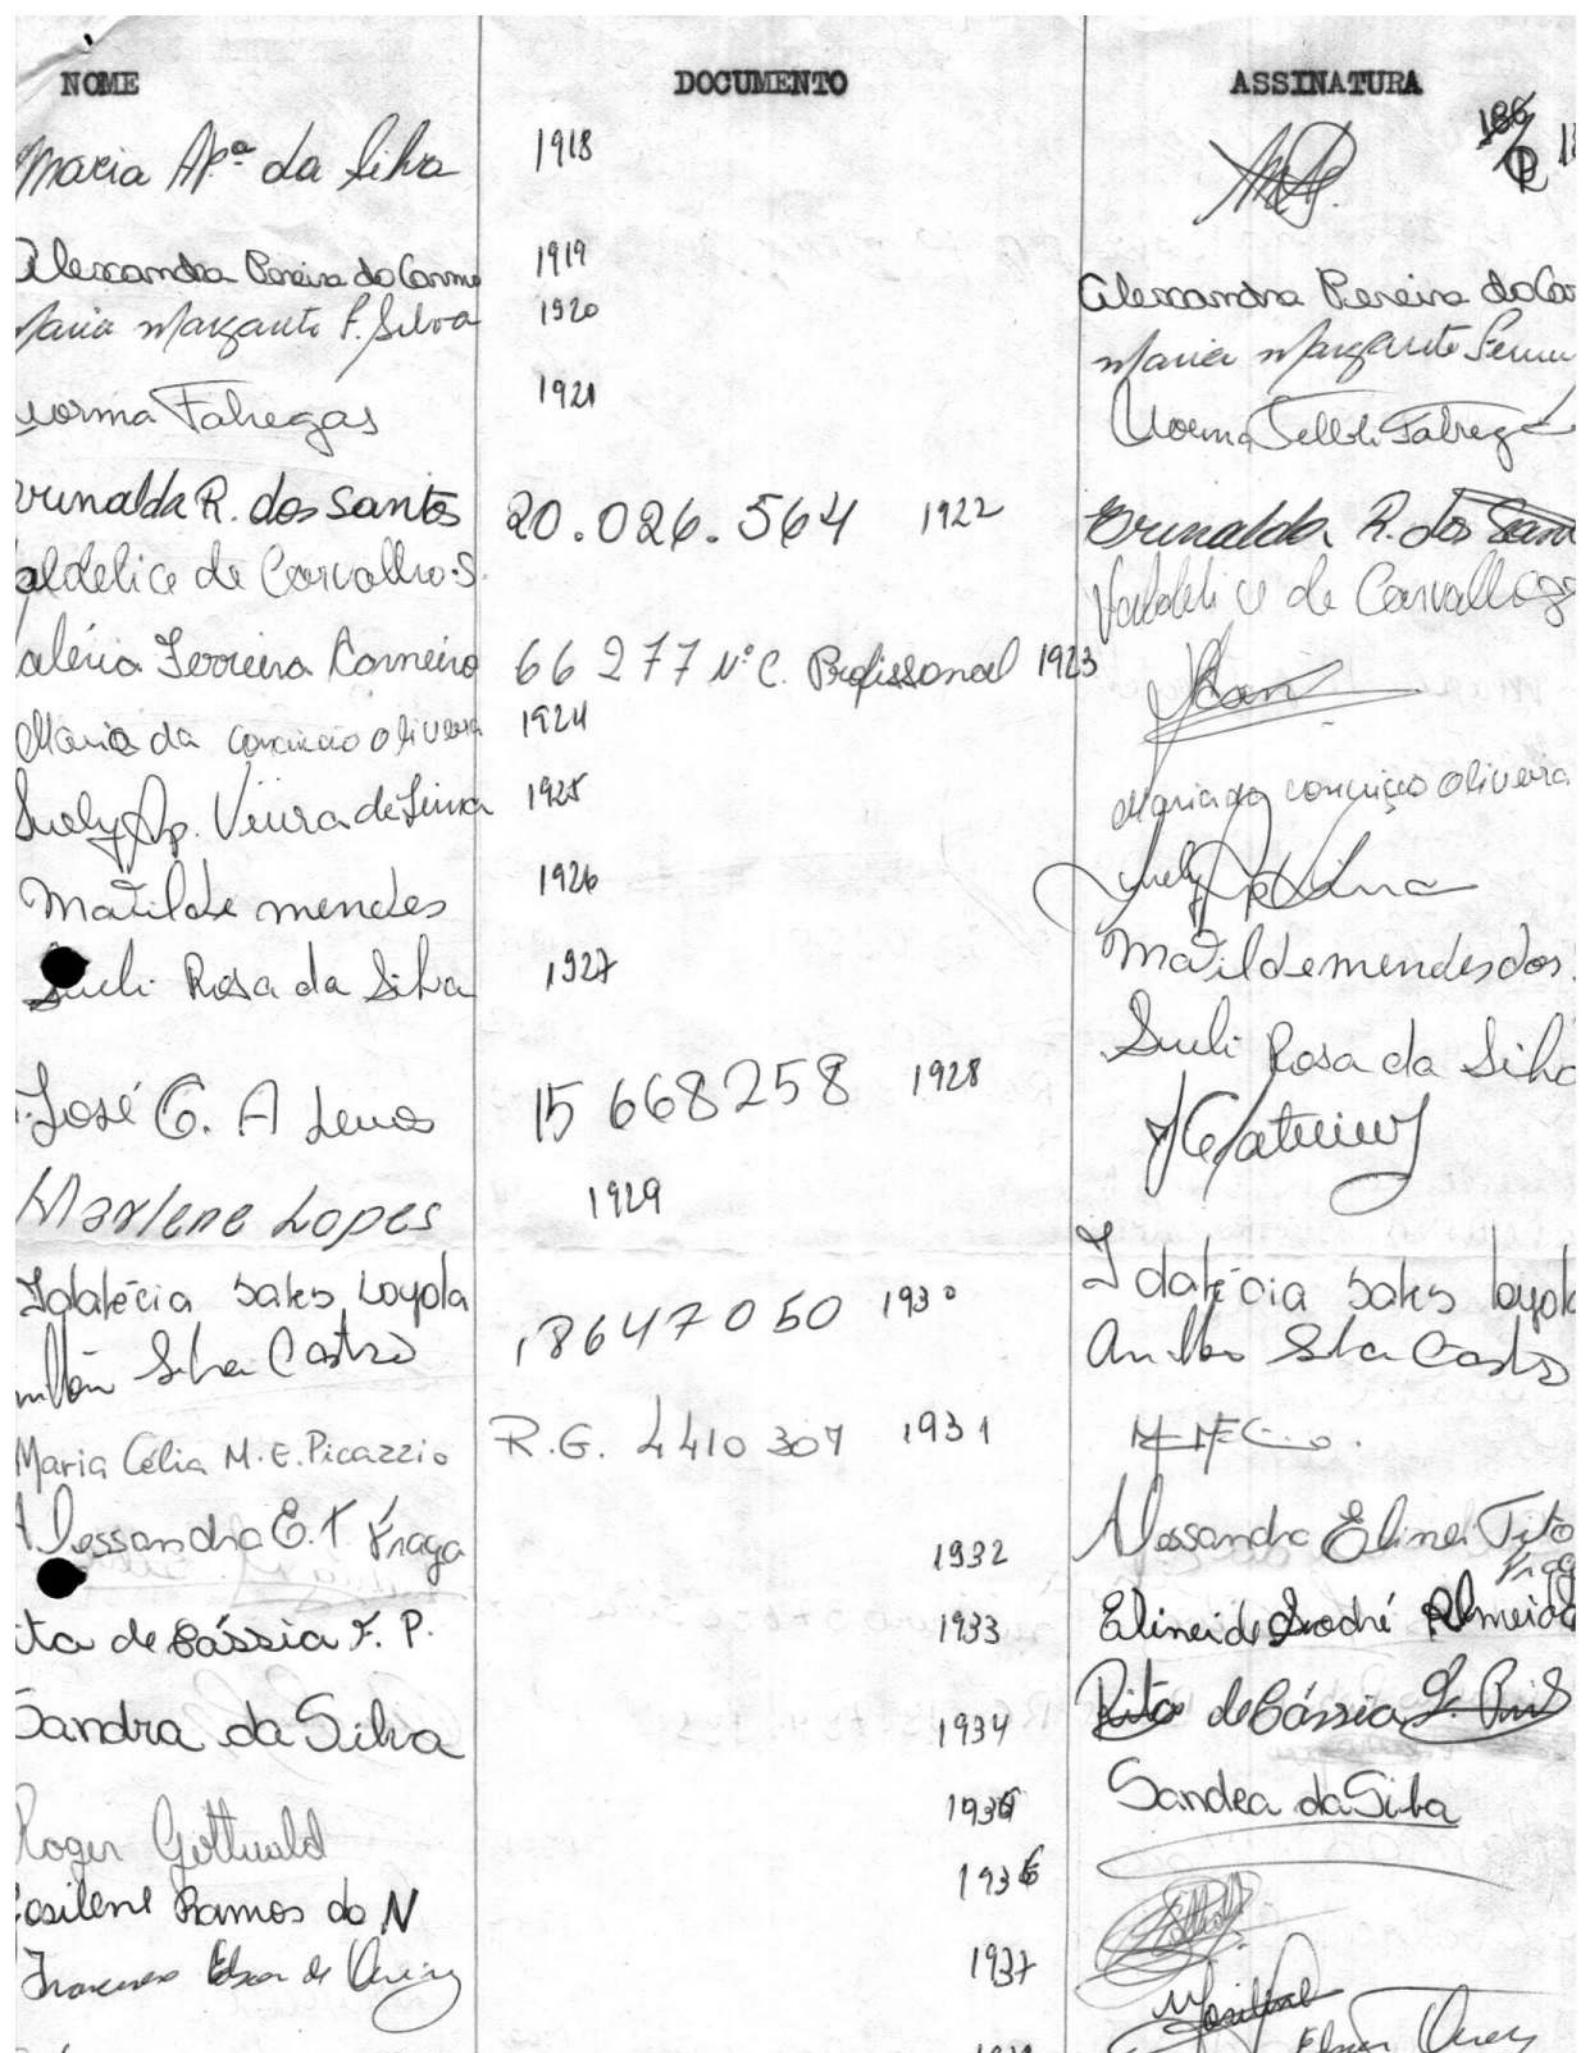 NOME DOCUMENTO ASSINATURA
186
Maria Apª da Silva 1918
Alexandra Pereira do Carmo 1919 Alexandra Pereira do Car
Maria Margarita F. Silva 1920 Maria Margarita
Norma Fabregas 1921 Norma Fabreg
runalda R. dos Santos 20.026.564 1922 Erunalda R. dos San
aldelice de Carvalho S. Valdelice de Carvalho
aléria Ferreira Carneiro 66 277 Nº C. Profissional 1923
Maria da Conceição Oliveira 1924 Maria da Conceição Oliveira
Suely Ap. Vieira de Lima 1925 Suely Ap Lima
Matilde mendes 1926 Matilde mendes dos
Sueli Rosa da Silva 1927 Sueli Rosa da Silva
José G. A Lemos 15 668258 1928
Marlene Lopes 1929
Idalécia Sales Loyola 18647050 1930 Idalécia Sales Loyol
Silva Castro Silva Castro
Maria Célia M. E. Picazzio R.G. 4410307 1931
Alessandra E. T Fraga 1932 Alessandra Elinei Tito
Frag
Elineide Sodré Almeida
ita de Cássia F. P. 1933 Rita de Cássia
Sandra da Silva 1934 Sandra da Silva
Roger Gottwald 1935
osilene Ramos do N 1936 Rosilene
Francisco de 1937